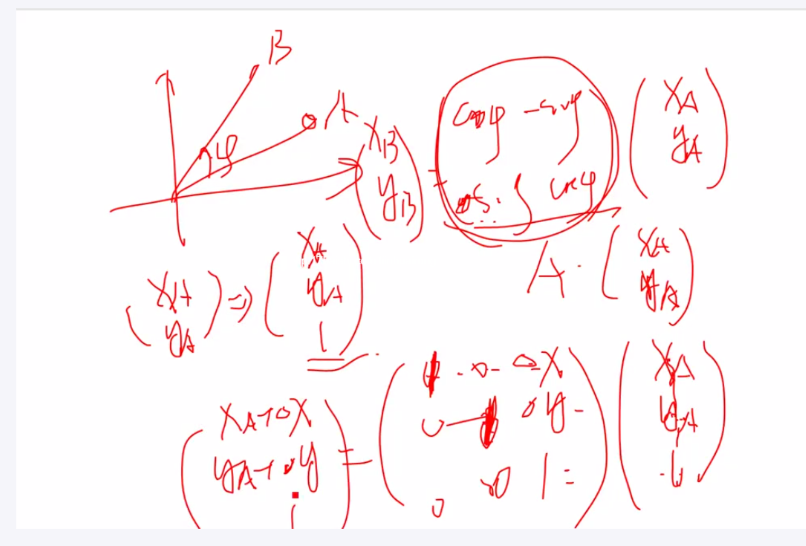 B
A
φ
( x_B y_B ) = ( cosφ -sinφ cosφ ) ( x_A y_A )
A · ( x_A y_A )
( x_A y_A ) ⇒ ( x_A y_A 1 )
( x_A+△x y_A+△y 1 ) = ( 1 0 △x 0 1 △y 0 0 1 ) ( x_A y_A 1 )